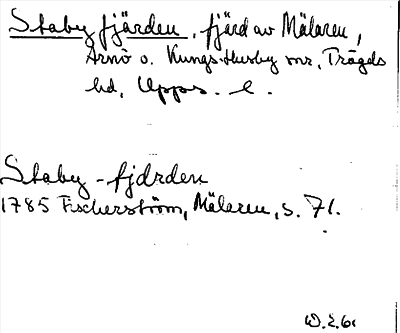 Stabyfjärden, fjärd av Mälaren,
Arnö o. Kungs-Husby snr, Trögds
hd, Upps. l.
Staby-fjärden
1785 Fischerström, Mälaren, s. 71.